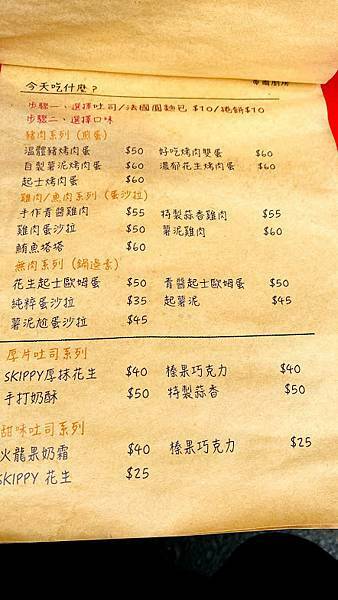 今天吃什麼？
步驟一、選擇吐司/法國圓麵包 $10/捲餅$10
步驟二、選擇口味
豬肉系列（煎蛋）
溫體豬烤肉蛋 $50 好吃烤肉雙蛋 $60
自製薯泥烤肉蛋 $60 濃郁花生烤肉蛋 $60
起士烤肉蛋 $60
雞肉/魚肉系列（蛋沙拉）
手作青醬雞肉 $55 特製蒜香雞肉 $55
雞肉蛋沙拉 $50 薯泥雞肉 $60
鮪魚塔塔 $60
無肉系列（鍋邊素）
花生起士歐姆蛋 $50 青醬起士歐姆蛋 $50
純粹蛋沙拉 $35 起薯泥 $45
薯泥尬蛋沙拉 $45
厚片吐司系列
SKIPPY厚抹花生 $40 榛果巧克力 $40
手打奶酥 $50 特製蒜香 $50
甜味吐司系列
火龍果奶霜 $40 榛果巧克力 $25
SKIPPY 花生 $25